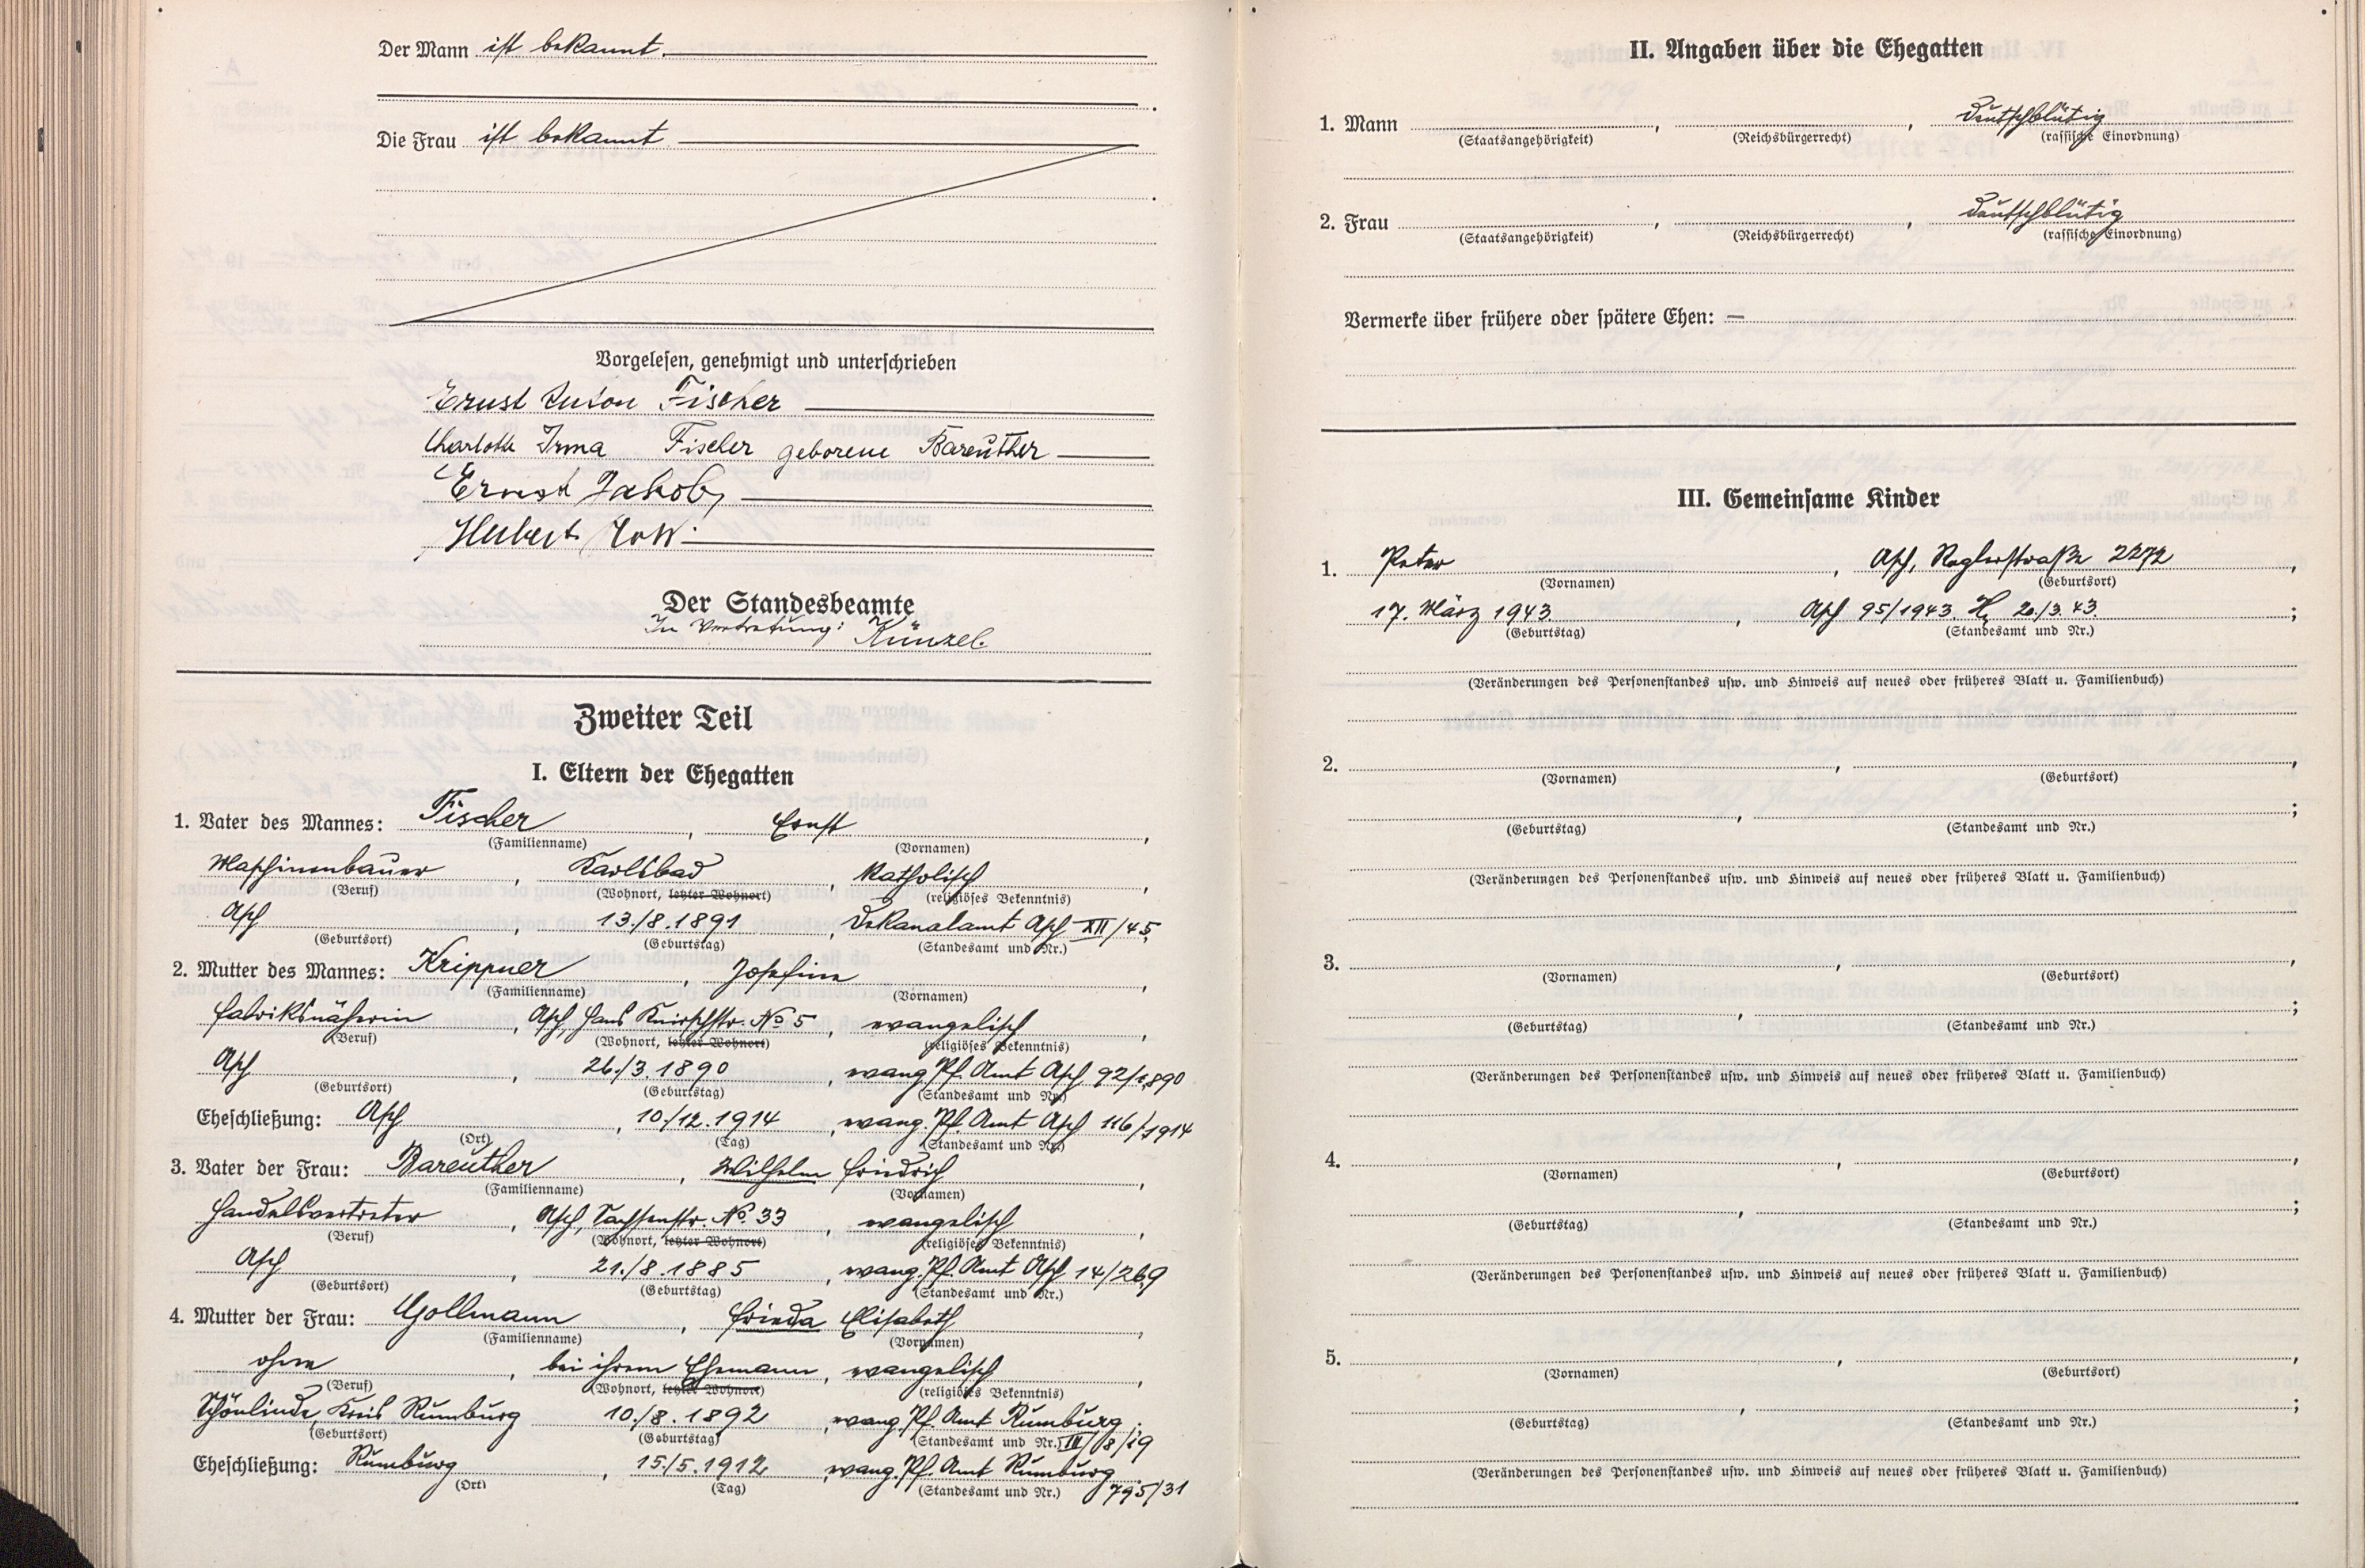 Der Mann ist bekannt.
Die Frau ist bekannt
Vorgelesen, genehmigt und unterschrieben
Ernst Anton Fischer
Charlotte Irma Fischer geborene Bareuther
Ernst Jakob
Herbert
Der Standesbeamte
In Vertretung: Künzel.
Zweiter Teil
I. Eltern der Ehegatten
1. Vater des Mannes: Fischer, Ernst,
(Familienname) (Vornamen)
Maschinenbauer, Karlsbad, katholisch,
(Beruf) (Wohnort, letzter Wohnort) (religiöses Bekenntnis)
Asch, 13./8.1891, Dekanalamt Asch XII/45,
(Geburtsort) (Geburtstag) (Standesamt und Nr.)
2. Mutter des Mannes: Krippner, Josefine,
(Familienname) (Vornamen)
Fabriksnäherin, Asch, Hans Knirschstr. No 5, evangelisch,
(Beruf) (Wohnort, letzter Wohnort) (religiöses Bekenntnis)
Asch, 26./3.1890, evang. Pf. Amt Asch 92/1890
(Geburtsort) (Geburtstag) (Standesamt und Nr.)
Eheschließung: Asch, 10./12.1914, evang. Pf. Amt Asch 116/1914
(Ort) (Tag) (Standesamt und Nr.)
3. Vater der Frau: Bareuther, Wilhelm Friedrich,
(Familienname) (Vornamen)
Handelsvertreter, Asch, Sachsenstr. No. 33, evangelisch,
(Beruf) (Wohnort, letzter Wohnort) (religiöses Bekenntnis)
Asch, 21./8.1885, evang. Pf. Amt Asch 14/269
(Geburtsort) (Geburtstag) (Standesamt und Nr.)
4. Mutter der Frau: Gollmann, Frieda Elisabeth,
(Familienname) (Vornamen)
ohne, bei ihrem Ehemann, evangelisch,
(Beruf) (Wohnort, letzter Wohnort) (religiöses Bekenntnis)
Schönlinde, Kreis Rumburg 10./8.1892, evang. Pf. Amt Rumburg
(Geburtsort) (Geburtstag) (Standesamt und Nr.) III/18/29
Eheschließung: Rumburg, 15./5.1912, evang. Pf. Amt Rumburg
(Ort) (Tag) (Standesamt und Nr.) 795/31
II. Angaben über die Ehegatten
1. Mann , , deutschblütig
(Staatsangehörigkeit) (Reichsbürgerrecht) (rassische Einordnung)
2. Frau , , deutschblütig
(Staatsangehörigkeit) (Reichsbürgerrecht) (rassische Einordnung)
Vermerke über frühere oder spätere Ehen: —
III. Gemeinsame Kinder
1. Peter, Asch, Roglerstraße 2272,
(Vornamen) (Geburtsort)
17. März 1943., Asch 95/1943. 20./3.43.;
(Geburtstag) (Standesamt und Nr.)
(Veränderungen des Personenstandes usw. und Hinweis auf neues oder früheres Blatt u. Familienbuch)
2. , ,
(Vornamen) (Geburtsort)
, ;
(Geburtstag) (Standesamt und Nr.)
(Veränderungen des Personenstandes usw. und Hinweis auf neues oder früheres Blatt u. Familienbuch)
3. , ,
(Vornamen) (Geburtsort)
, ;
(Geburtstag) (Standesamt und Nr.)
(Veränderungen des Personenstandes usw. und Hinweis auf neues oder früheres Blatt u. Familienbuch)
4. , ,
(Vornamen) (Geburtsort)
, ;
(Geburtstag) (Standesamt und Nr.)
(Veränderungen des Personenstandes usw. und Hinweis auf neues oder früheres Blatt u. Familienbuch)
5. , ,
(Vornamen) (Geburtsort)
, ;
(Geburtstag) (Standesamt und Nr.)
(Veränderungen des Personenstandes usw. und Hinweis auf neues oder früheres Blatt u. Familienbuch)